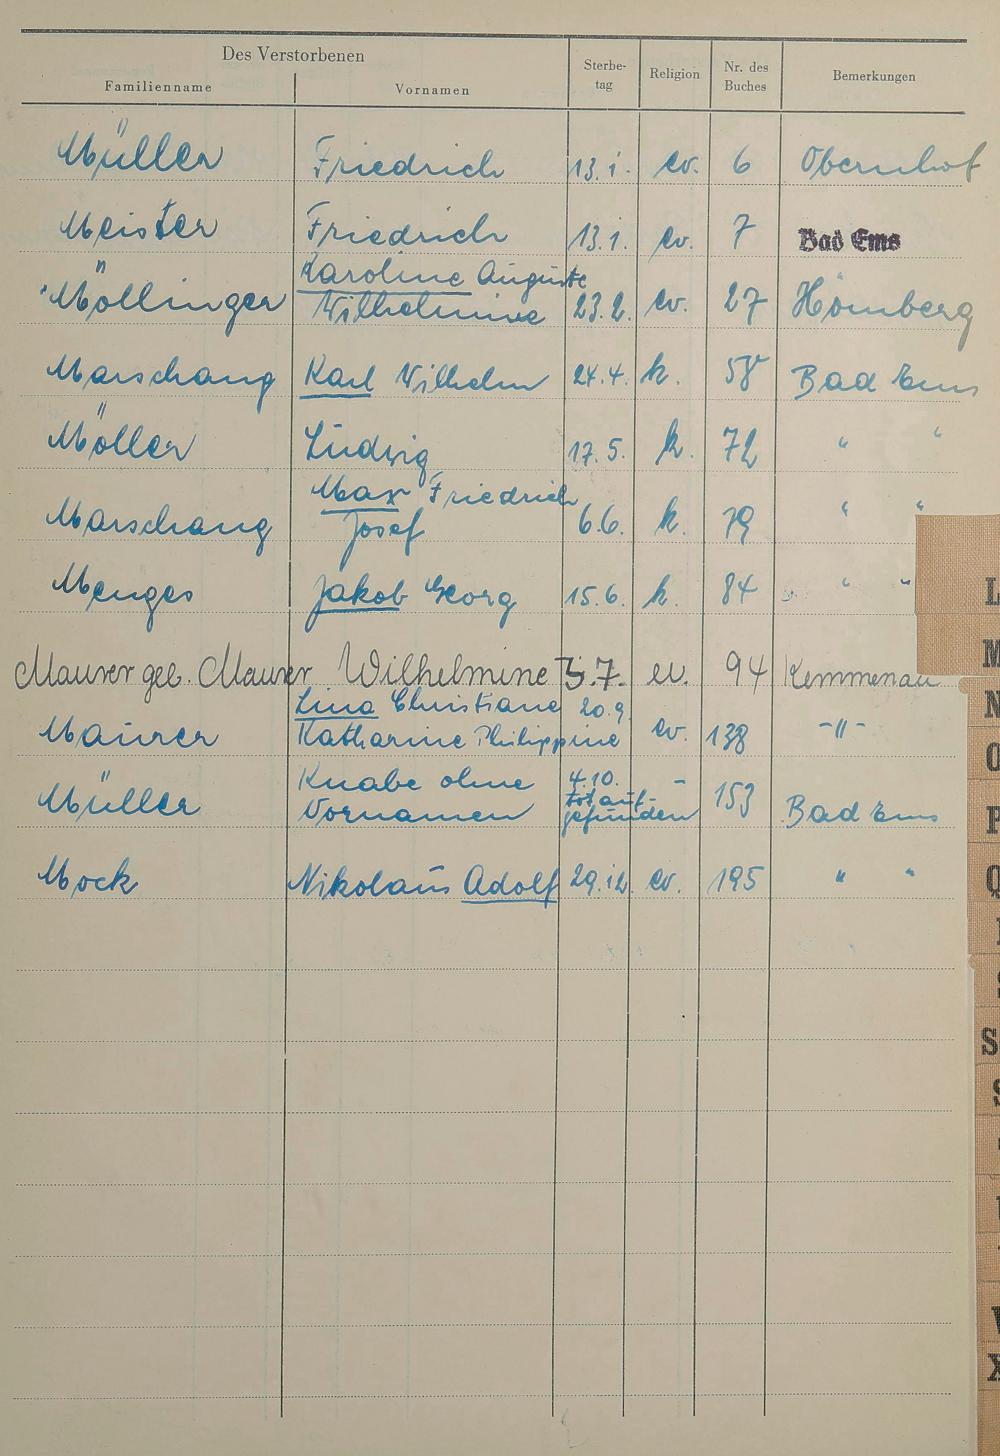 Des Verstorbenen
Familienname Vornamen Sterbe-tag Religion Nr. des Buches Bemerkungen
Müller Friedrich 13.1. ev. 6 Obernhof
Meister Friedrich 13.1. ev. 7 Bad Ems
Karoline Auguste
Möllinger Wilhelmine 23.2. ev. 27 Hömberg
Marschang Karl Wilhelm 24.4. k. 58 Bad Ems
Möller Ludwig 17.5. k. 72 " "
Max Friedrich
Marschang Josef 6.6. k. 79 " "
Menges Jakob Georg 15.6. k. 84 " "
Maurer geb. Maurer Wilhelmine 3.7. ev. 94 Kemmenau
Lina Christiane 20.9.
Maurer Katharine Philippine ev. 138 -"-
Knabe ohne 4.10. -
Müller Vornamen tot auf-gefunden 153 Bad Ems
Mock Nikolaus Adolf 29.12. ev. 195 " "
L
M
N
O
P
Q
S
S
X